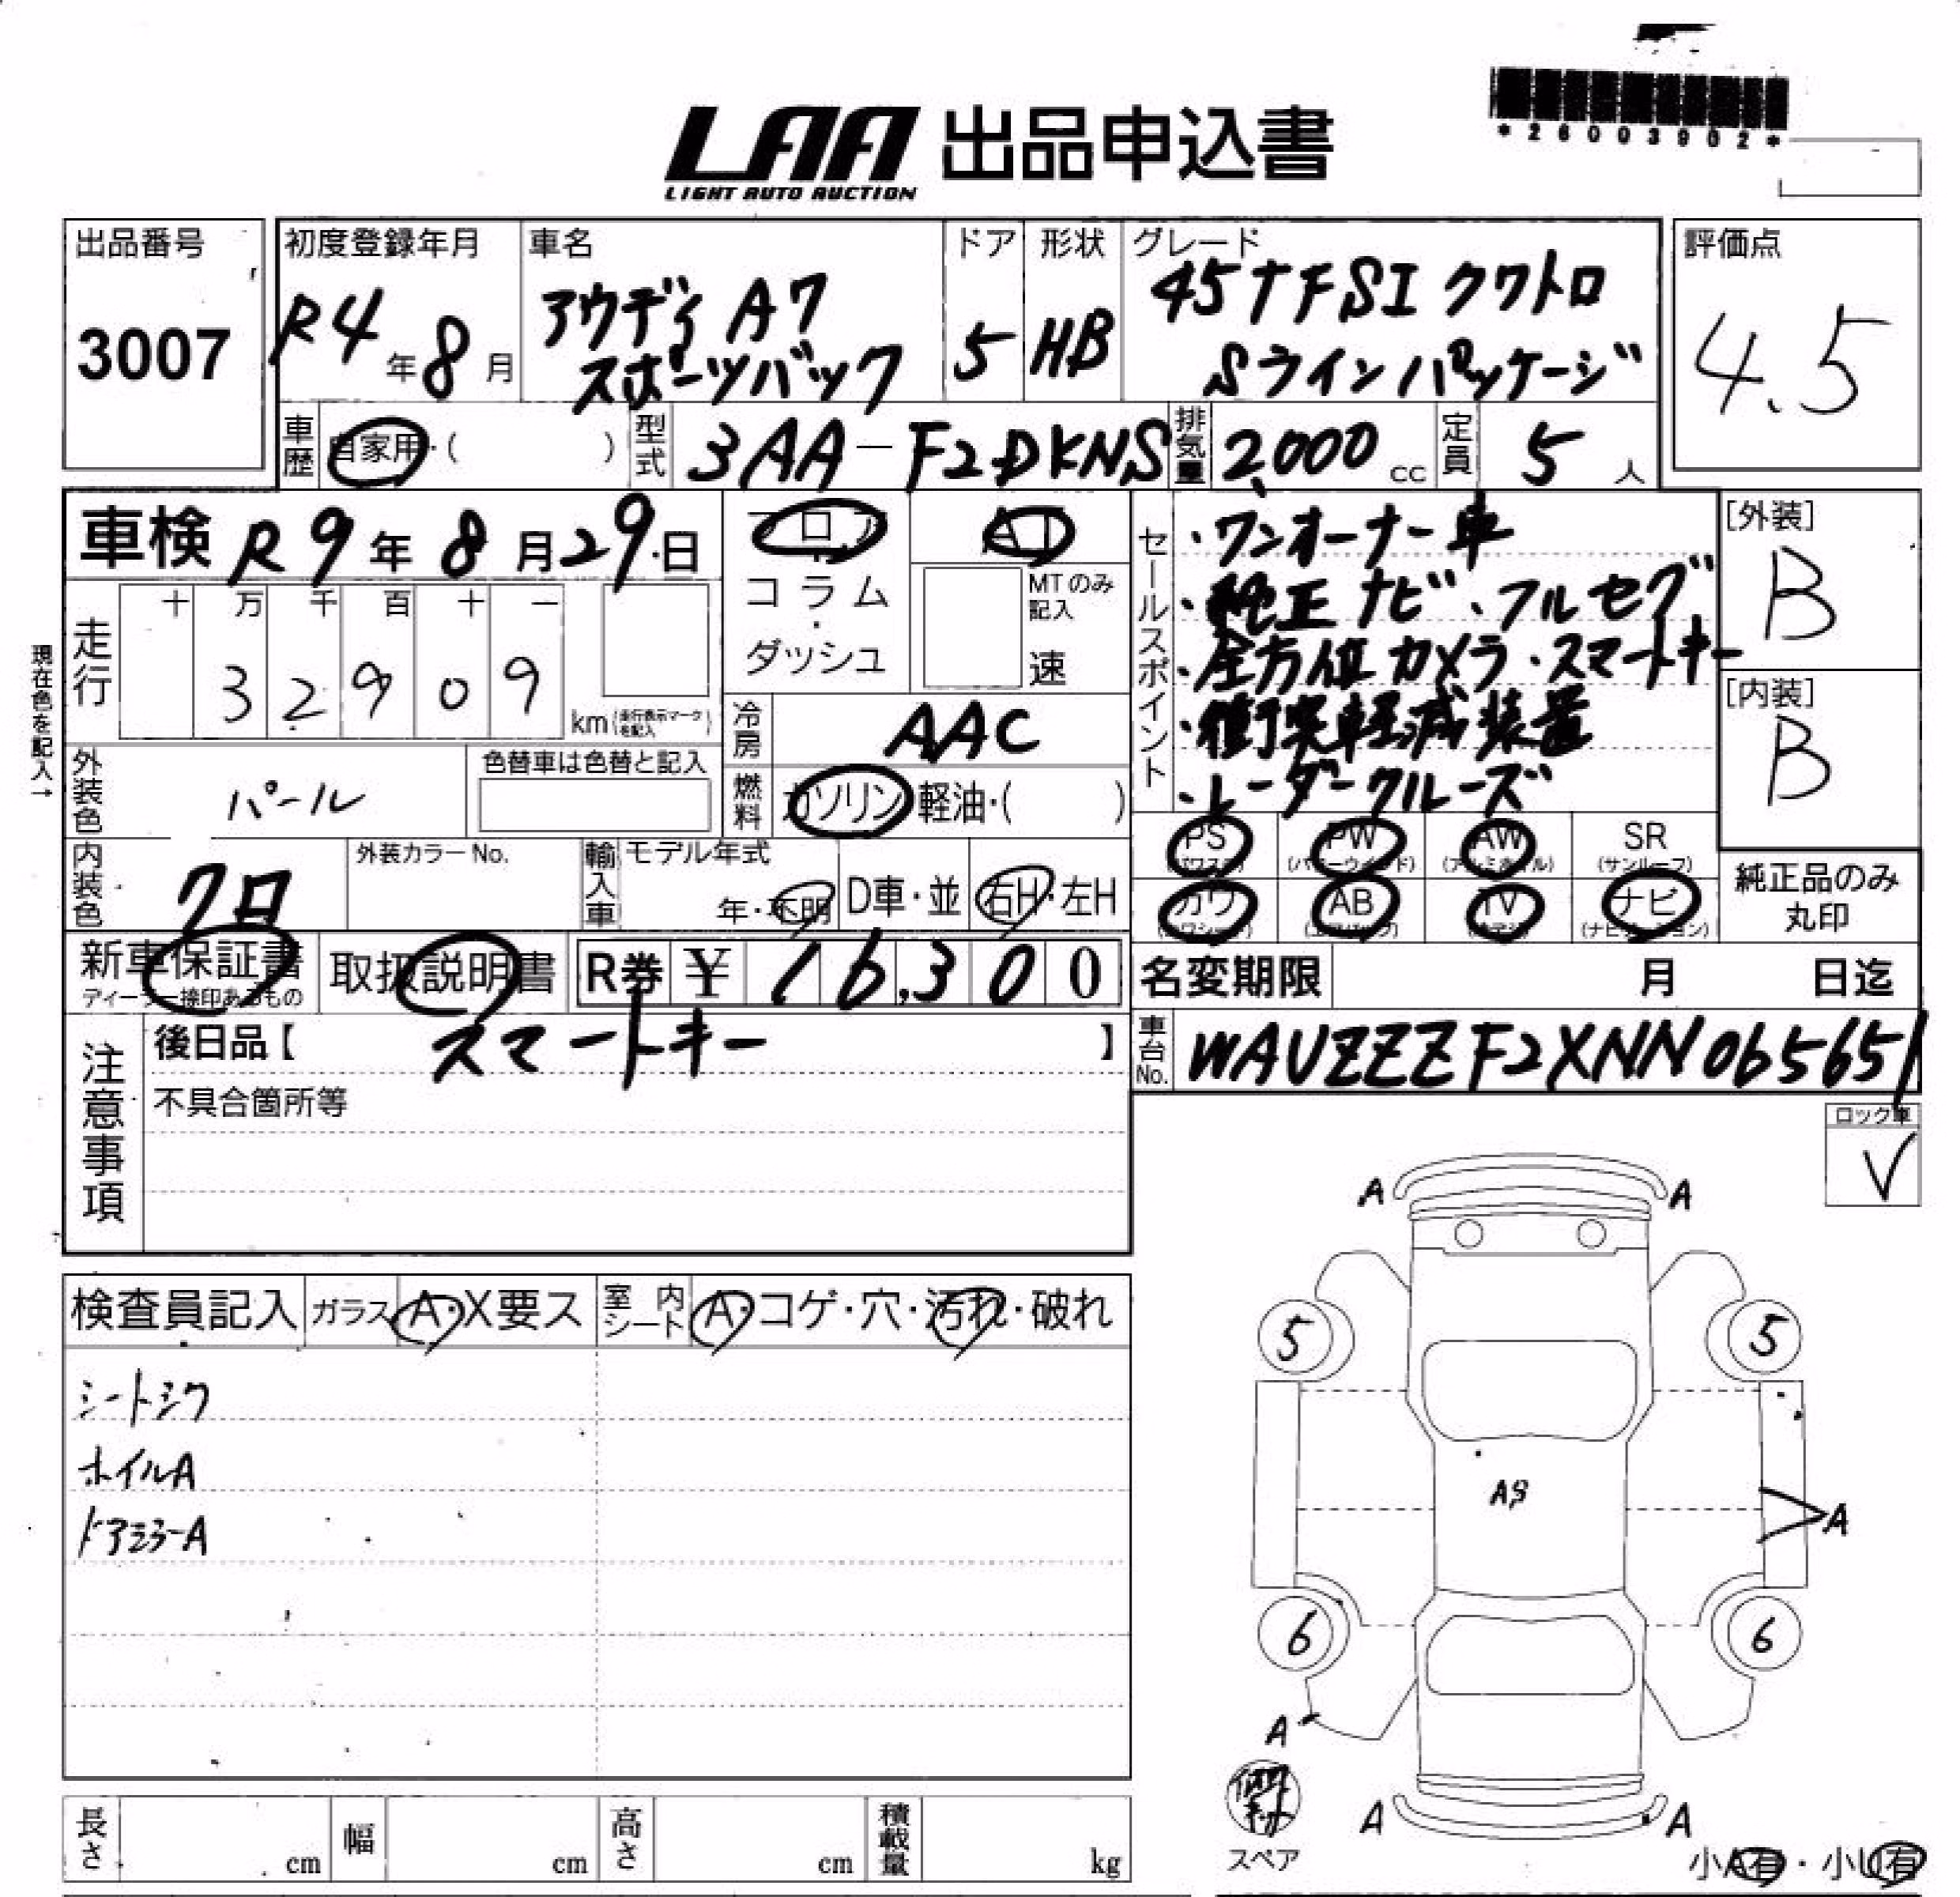 *26003902*
LAA 出品申込書
LIGHT AUTO AUCTION
出品番号
3007
初度登録年月
R4年8月
車名
アウディ A7
スポーツバック
ドア
5
形状
HB
グレード
45TFSI クワトロ
Sラインパッケージ
評価点
4.5
車歴
自家用・( )
型式
3AA-F2DKNS
排気量
2,000 cc
定員
5人
車検 R9年8月29日
フロア
コラム
ダッシュ
AT
MTのみ記入
速
セールスポイント
・ワンオーナー車
・純正ナビ、フルセグ
・全方位カメラ・スマートキー
・衝突軽減装置
・レーダークルーズ
[外装]
B
[内装]
B
現在色を記入→
走行
十 万 千 百 十 一
3 2 9 0 9
km(走行表示マークを記入)
冷房
AAC
外装色
パール
色替車は色替と記入
燃料
ガソリン 軽油・( )
内装色
クロ
外装カラーNo.
輸入車
モデル年式
年・不明
D車・並
右H・左H
PS
(パワステ)
PW
(パワーウインド)
AW
(アルミホイル)
SR
(サンルーフ)
カワ
(カワシート)
AB
(エアバック)
TV
ナビ
(ナビゲーション)
純正品のみ
丸印
新車保証書
ディーラー捺印あるもの
取扱説明書
R券 ¥ 16,300
名変期限 月 日迄
注意事項
後日品【 スマートキー 】
不具合箇所等
車台No.
WAUZZZF2XNN065651
ロック車
✓
検査員記入
ガラス A・X要ス
室内シート A・コゲ・穴・汚れ・破れ
シートシワ
ホイルA
ドアミラーA
A A
5 5
A
6 6
A
A A
スペア
小A有・小U有
長さ cm
幅 cm
高さ cm
積載量 kg